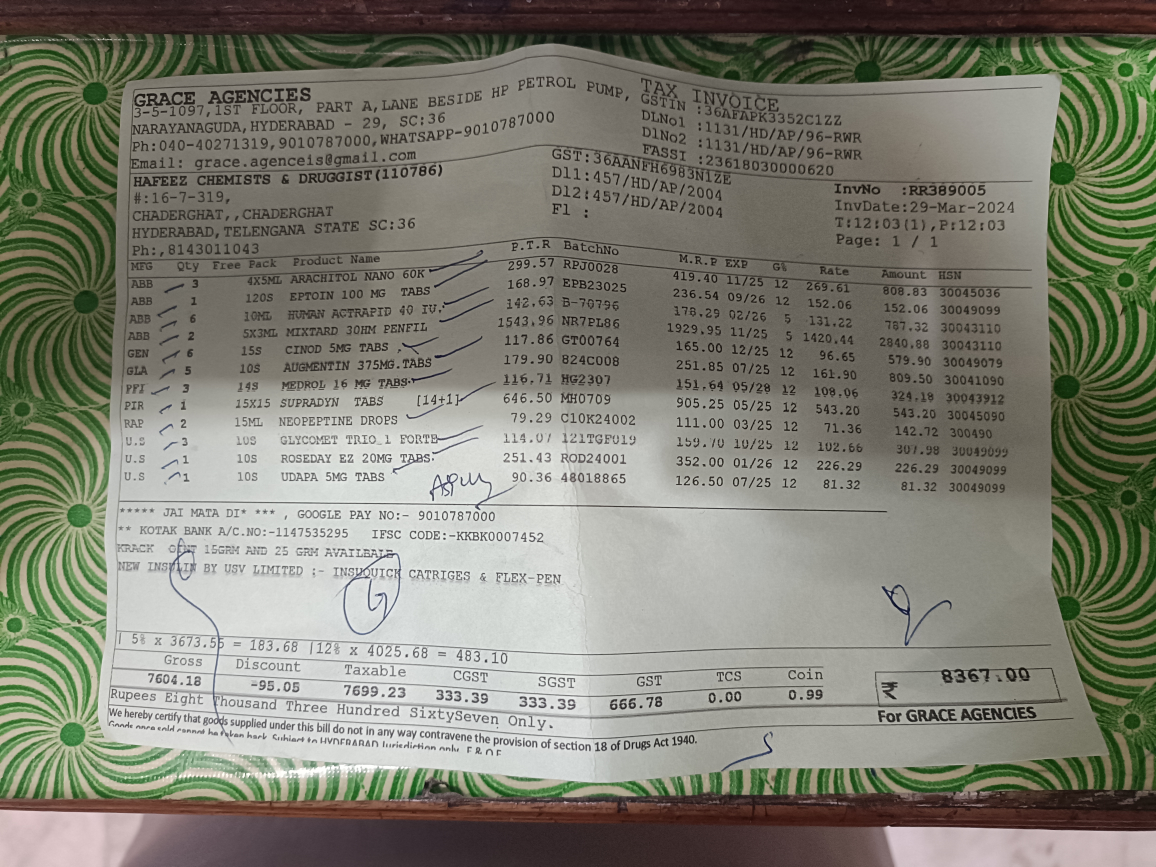 GRACE AGENCIES
3-5-1097,1ST FLOOR, PART A,LANE BESIDE HP PETROL PUMP,
NARAYANAGUDA,HYDERABAD - 29, SC:36
Ph:040-40271319,9010787000,WHATSAPP-9010787000
Email: grace.agenceis@gmail.com
TAX INVOICE
GSTIN :36AFAPK3352C1ZZ
DLNo1 :1131/HD/AP/96-RWR
DlNo2 :1131/HD/AP/96-RWR
FASSI :23618030000620
HAFEEZ CHEMISTS & DRUGGIST(110786)
#:16-7-319,
CHADERGHAT,,CHADERGHAT
HYDERABAD, TELENGANA STATE SC:36
Ph:,8143011043
GST:36AANFH6983N1ZE
Dl1:457/HD/AP/2004
Dl2:457/HD/AP/2004
Fl :
InvNo :RR389005
InvDate:29-Mar-2024
T:12:03(1),P:12:03
Page: 1 / 1
MFG Qty Free Pack Product Name P.T.R BatchNo M.R.P EXP G% Rate Amount HSN
ABB 3 4X5ML ARACHITOL NANO 60K 299.57 RPJ0028 419.40 11/25 12 269.61 808.83 30045036
ABB 1 120S EPTOIN 100 MG TABS 168.97 EPB23025 236.54 09/26 12 152.06 152.06 30049099
ABB 6 10ML HUMAN ACTRAPID 40 IU. 142.63 B-70796 178.29 02/26 5 131.22 787.32 30043110
ABB 2 5X3ML MIXTARD 30HM PENFIL 1543.96 NR7PL86 1929.95 11/25 5 1420.44 2840.88 30043110
GEN 6 15S CINOD 5MG TABS 117.86 GT00764 165.00 12/25 12 96.65 579.90 30049079
GLA 5 10S AUGMENTIN 375MG.TABS 179.90 824C008 251.85 07/25 12 161.90 809.50 30041090
PFI 3 14S MEDROL 16 MG TABS 116.71 HG2307 151.64 05/28 12 108.06 324.18 30043912
PIR 1 15X15 SUPRADYN TABS [14+1] 646.50 MH0709 905.25 05/25 12 543.20 543.20 30045090
RAP 2 15ML NEOPEPTINE DROPS 79.29 C10K24002 111.00 03/25 12 71.36 142.72 300490
U.S 3 10S GLYCOMET TRIO 1 FORTE 114.07 121TGF019 159.70 10/25 12 102.66 307.98 30049099
U.S 1 10S ROSEDAY EZ 20MG TABS. 251.43 ROD24001 352.00 01/26 12 226.29 226.29 30049099
U.S 1 10S UDAPA 5MG TABS 90.36 48018865 126.50 07/25 12 81.32 81.32 30049099
***** JAI MATA DI* *** , GOOGLE PAY NO:- 9010787000
** KOTAK BANK A/C.NO:-1147535295 IFSC CODE:-KKBK0007452
KRACK OINT 15GRM AND 25 GRM AVAILBALE
NEW INSULIN BY USV LIMITED :- INSUQUICK CATRIGES & FLEX-PEN
| 5% x 3673.55 = 183.68 |12% x 4025.68 = 483.10
Gross Discount Taxable CGST SGST GST TCS Coin
7604.18 -95.05 7699.23 333.39 333.39 666.78 0.00 0.99
₹ 8367.00
Rupees Eight Thousand Three Hundred SixtySeven Only.
For GRACE AGENCIES
We hereby certify that goods supplied under this bill do not in any way contravene the provision of section 18 of Drugs Act 1940.
Goods once sold cannot be taken back. Subject to HYDERABAD Jurisdiction only. E & O E